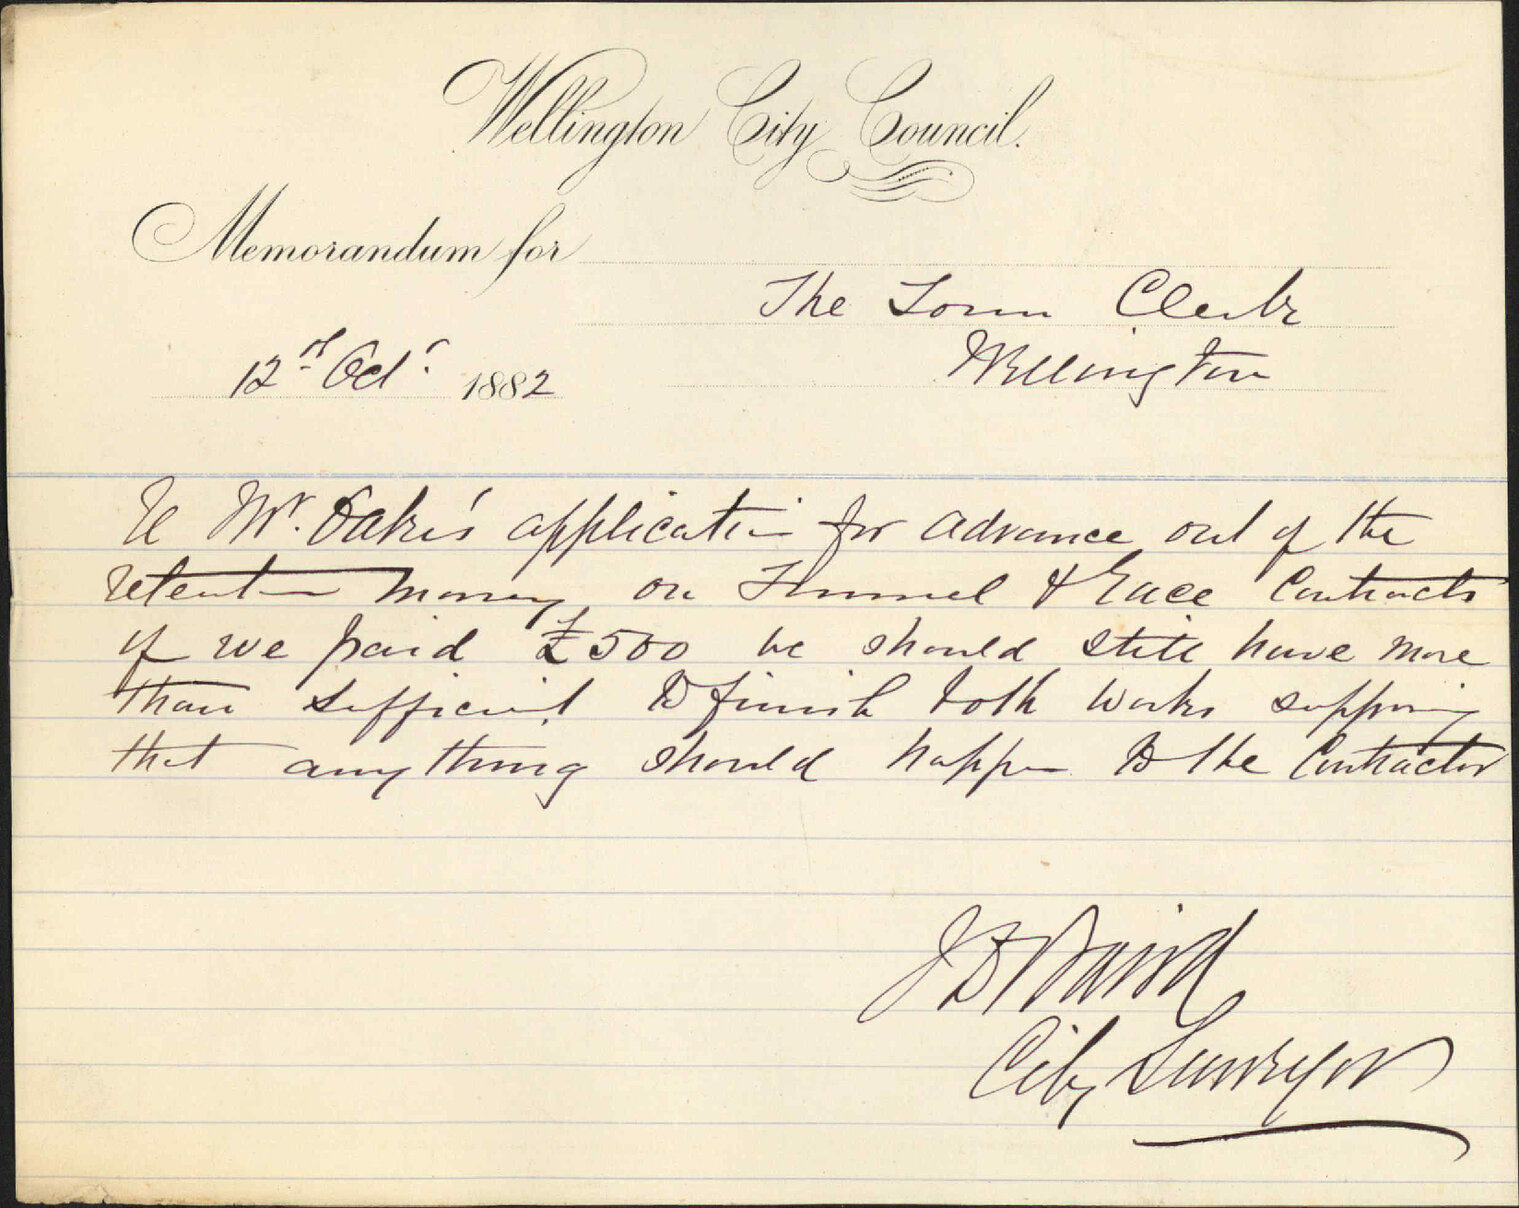 Wellington City Council.
Memorandum for
The Town Clerk
Wellington
12nd Octr. 1882
Re Mr. Oakes's application for advance out of the
retention money on Tunnel & Race Contracts
if we paid £500 we should still have more
than sufficient to finish both works supposing
that anything should happen to the Contractor
J D Baird
City Surveyor